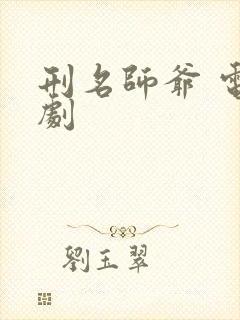 刑名師爺
劇
劉玉翠